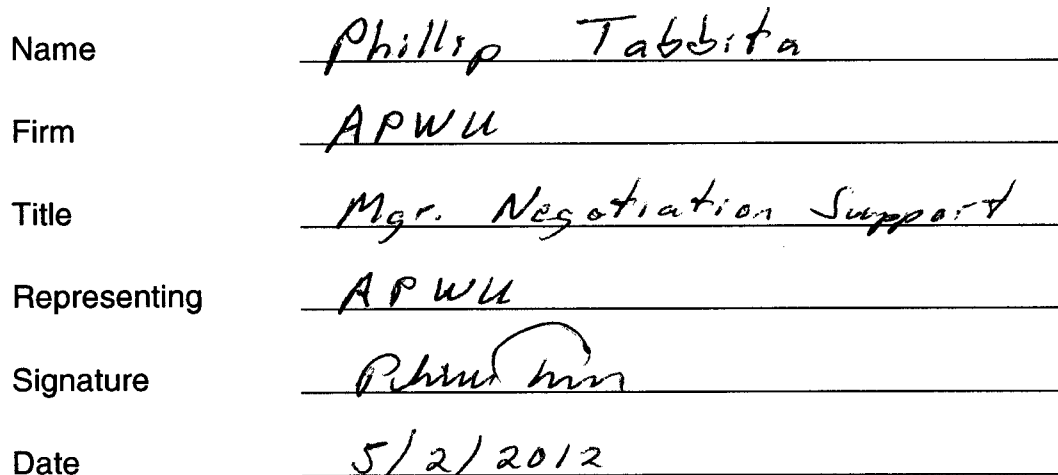 Name Phillip Tabbita
Firm APWU
Title Mgr. Negotiation Support
Representing APWU
Signature
Date 5/2/2012